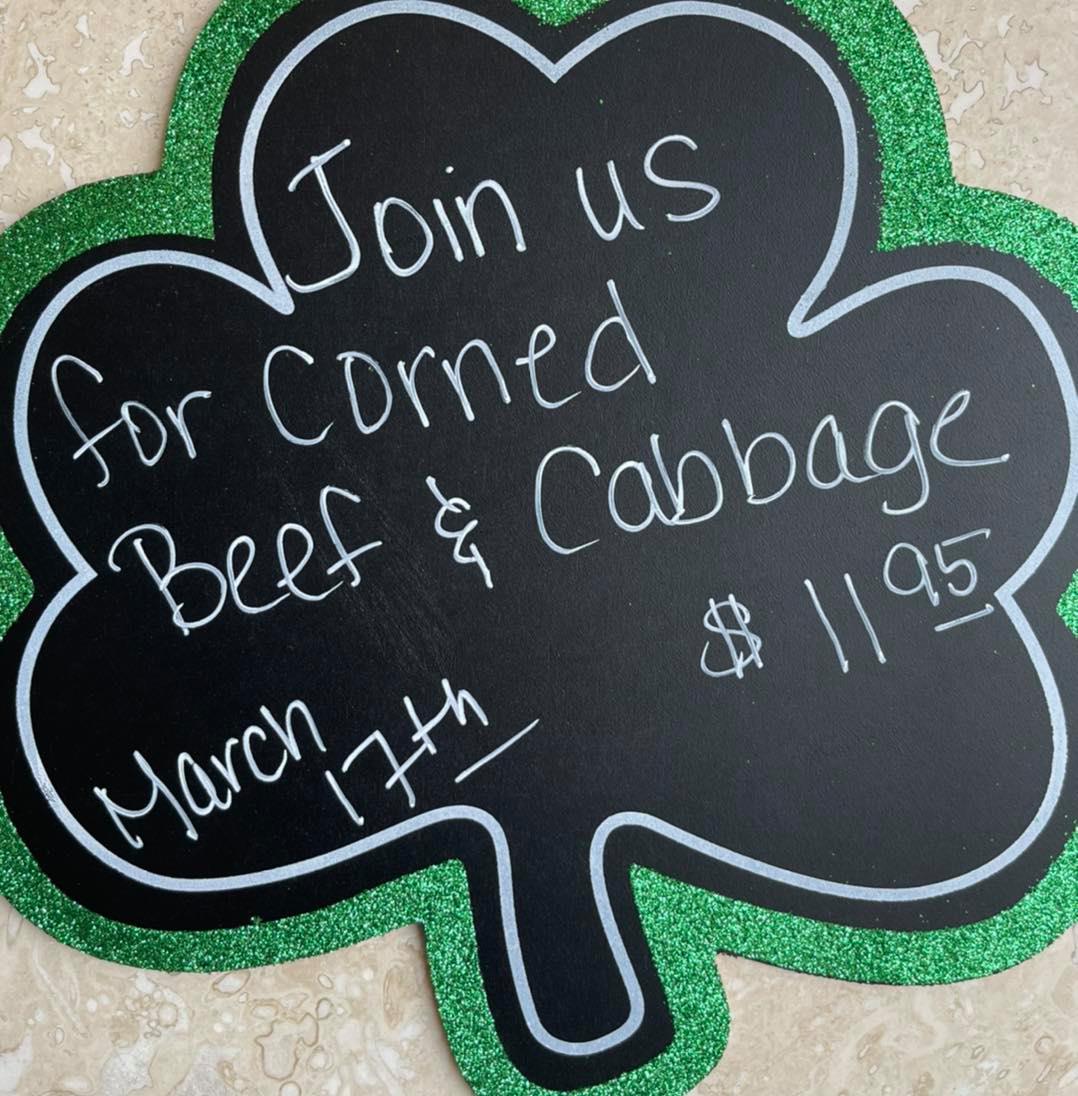 Join us
for Corned
Beef & Cabbage
$ 11 95
March 17th